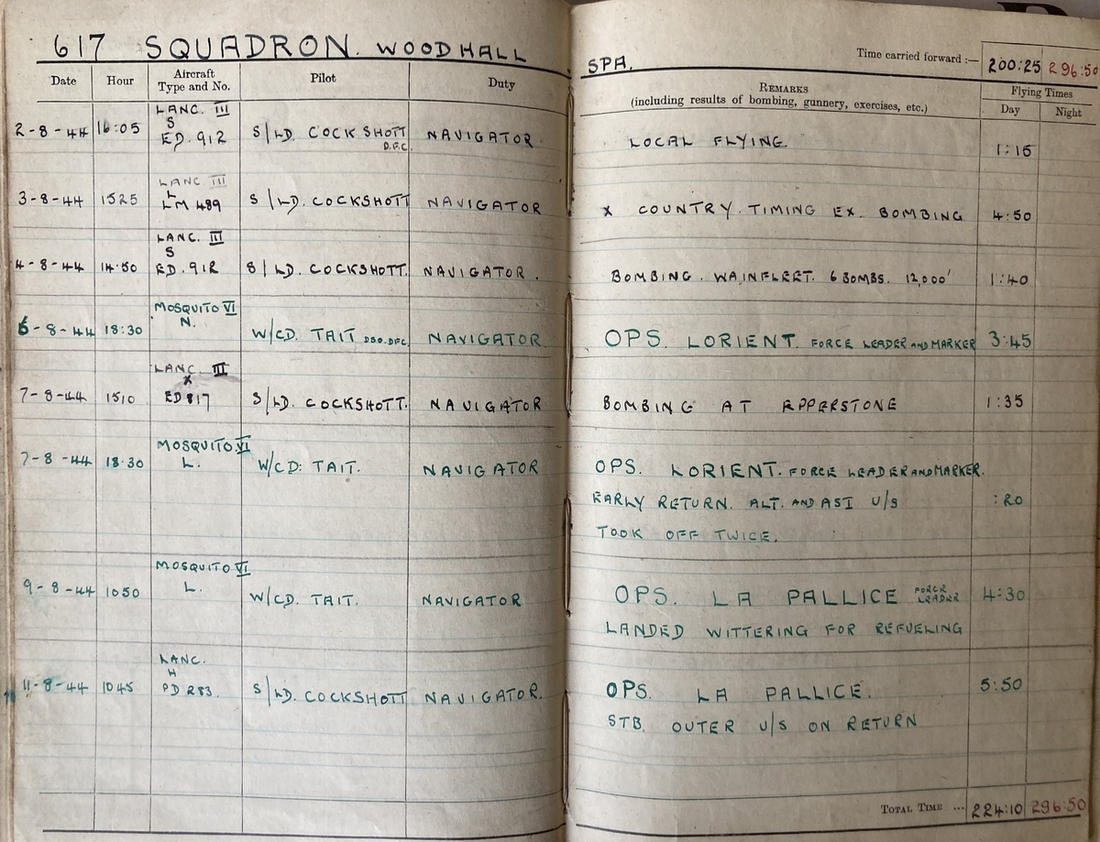 617 SQUADRON. WOODHALL SPA.
Time carried forward :— 200:25 296:50
Date Hour Aircraft Type and No. Pilot Duty REMARKS (including results of bombing, gunnery, exercises, etc.) Flying Times Day Night
LANC. III
S
2-8-44 16:05 ED.912 S/LD. COCKSHOTT D.F.C. NAVIGATOR LOCAL FLYING. 1:15
LANC III
L
3-8-44 1525 LM 489 S/LD. COCKSHOTT NAVIGATOR X COUNTRY. TIMING EX. BOMBING 4:50
LANC. III
S
4-8-44 14.50 ED.912 S/LD. COCKSHOTT. NAVIGATOR. BOMBING. WAINFLEET. 6 BOMBS. 12,000' 1:40
MOSQUITO VI
N.
6-8-44 18:30 W/CD. TAIT DSO.DFC. NAVIGATOR OPS. LORIENT. FORCE LEADER AND MARKER 3:45
LANC. III
X
7-8-44 1510 ED817 S/LD. COCKSHOTT. NAVIGATOR BOMBING AT EPPERSTONE 1:35
MOSQUITO VI
7-8-44 18.30 L. W/CD. TAIT. NAVIGATOR OPS. LORIENT. FORCE LEADER AND MARKER.
EARLY RETURN. ALT. AND ASI U/S :20
TOOK OFF TWICE.
MOSQUITO VI
9-8-44 1050 L. W/CD. TAIT. NAVIGATOR OPS. LA PALLICE FORCE LEADER 4:30
LANDED WITTERING FOR REFUELING
LANC.
H
11-8-44 1045 PD 233. S/LD. COCKSHOTT NAVIGATOR. OPS. LA PALLICE. 5:50
STB. OUTER U/S ON RETURN
TOTAL TIME ... 224:10 296:50